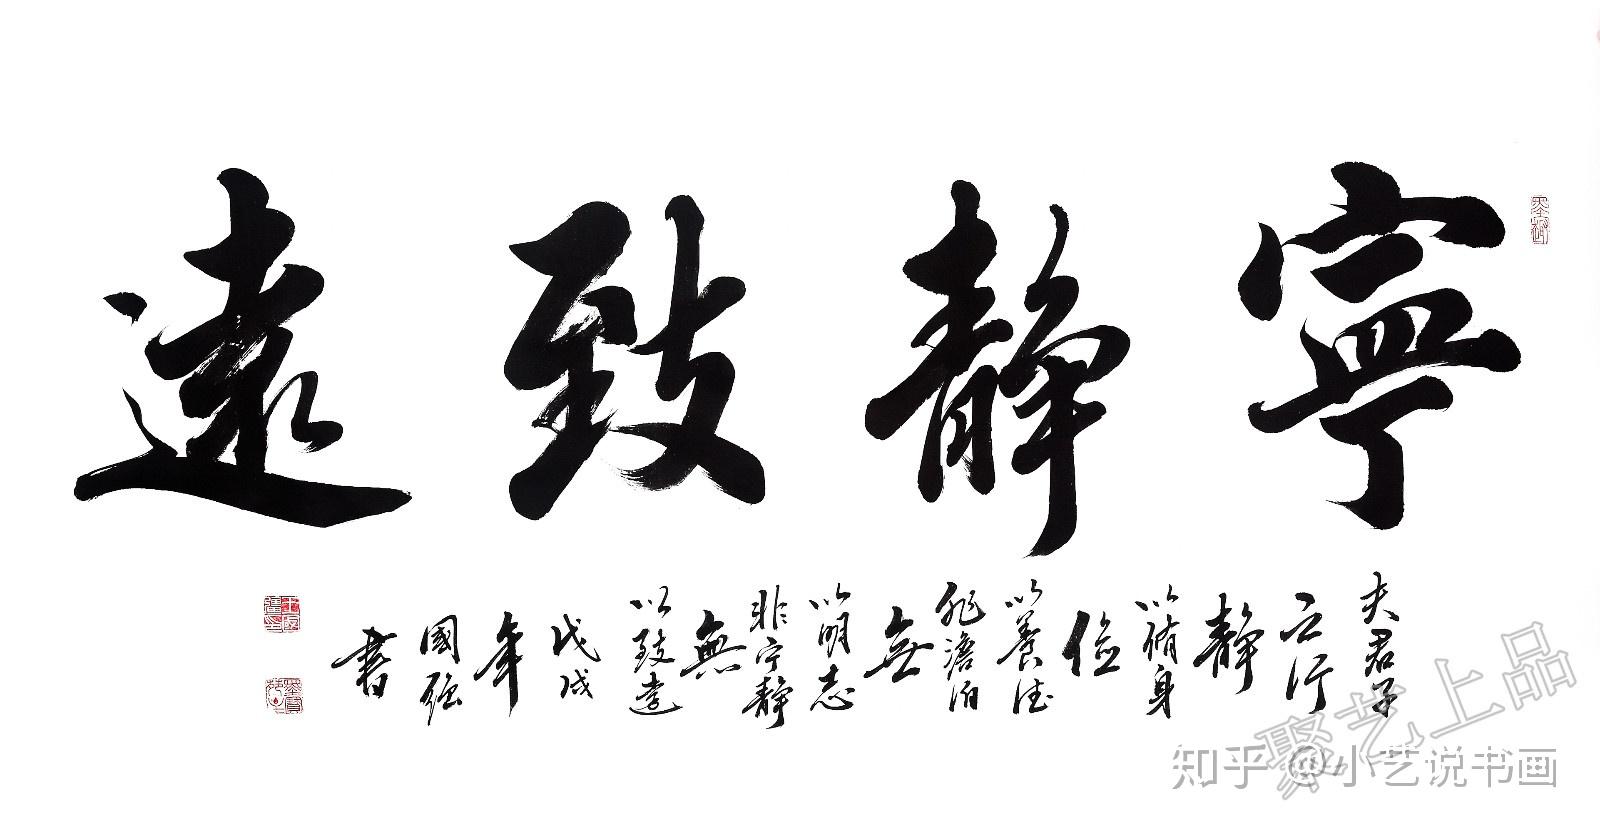 寧靜致遠
夫君子
之行
静
以脩身
俭
以養德
非澹泊
無
以明志
非宁静
無
以致遠
戊戌
年
國强
書
聚艺上品
知乎 @小艺说书画